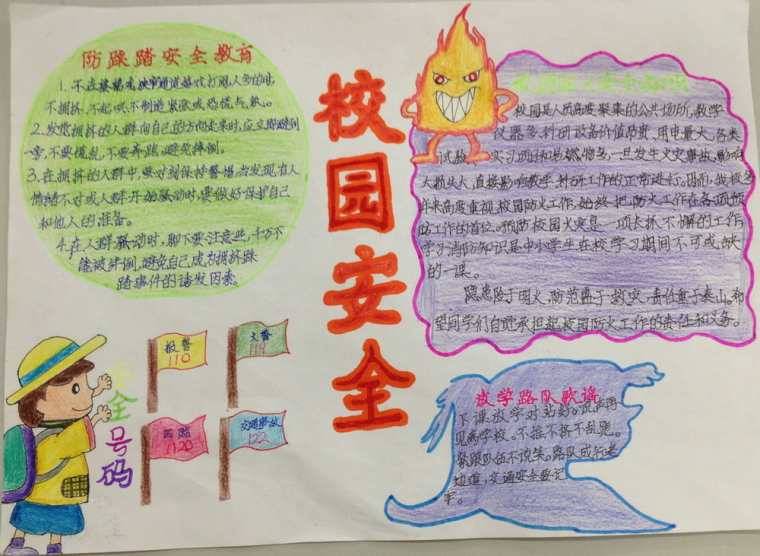 校园安全
防踩踏安全教育
不拥挤、不起哄不制造紧张或恐慌气氛。
2.发觉拥挤的人群向自己的方向走来时,应立即避到
一旁,不要慌乱,不要奔跑,避免摔倒。
3.在拥挤的人群中,要时刻保持警惕,当发现有人
情绪不对或人群开始骚动时,要做好保护自己
和他人的准备。
4.在人群骚动时,脚下要注意些,千万不
能被绊倒,避免自己成为拥挤踩
踏事件的诱发因素。
校园是人员高度聚集的公共场所,教学
仪器多,科研设备价值昂贵,用电量大,各类
一旦发生火灾事故,影响
大损失大,直接影响教学、科研工作的正常进行。因而,我校
年来高度重视校园防火工作,始终把防火工作在各项预
防工作的首位。预防校园火灾是一项大抓不懈的工作
学习消防知识是中小学生在校学习期间不可或缺
的一课。
隐患险于明火,防范胜于救灾,责任重于泰山。希
望同学们自觉承担起校园防火工作的责任和义务。
安全号码
报警
110
火警
119
120
交通事故
122
放学路队歌谣
下课放学对站好。
见离学校。不推不挤不乱跑。
紧跟队伍不顶笑。路队成行走
边道,交通安全要记
牢。